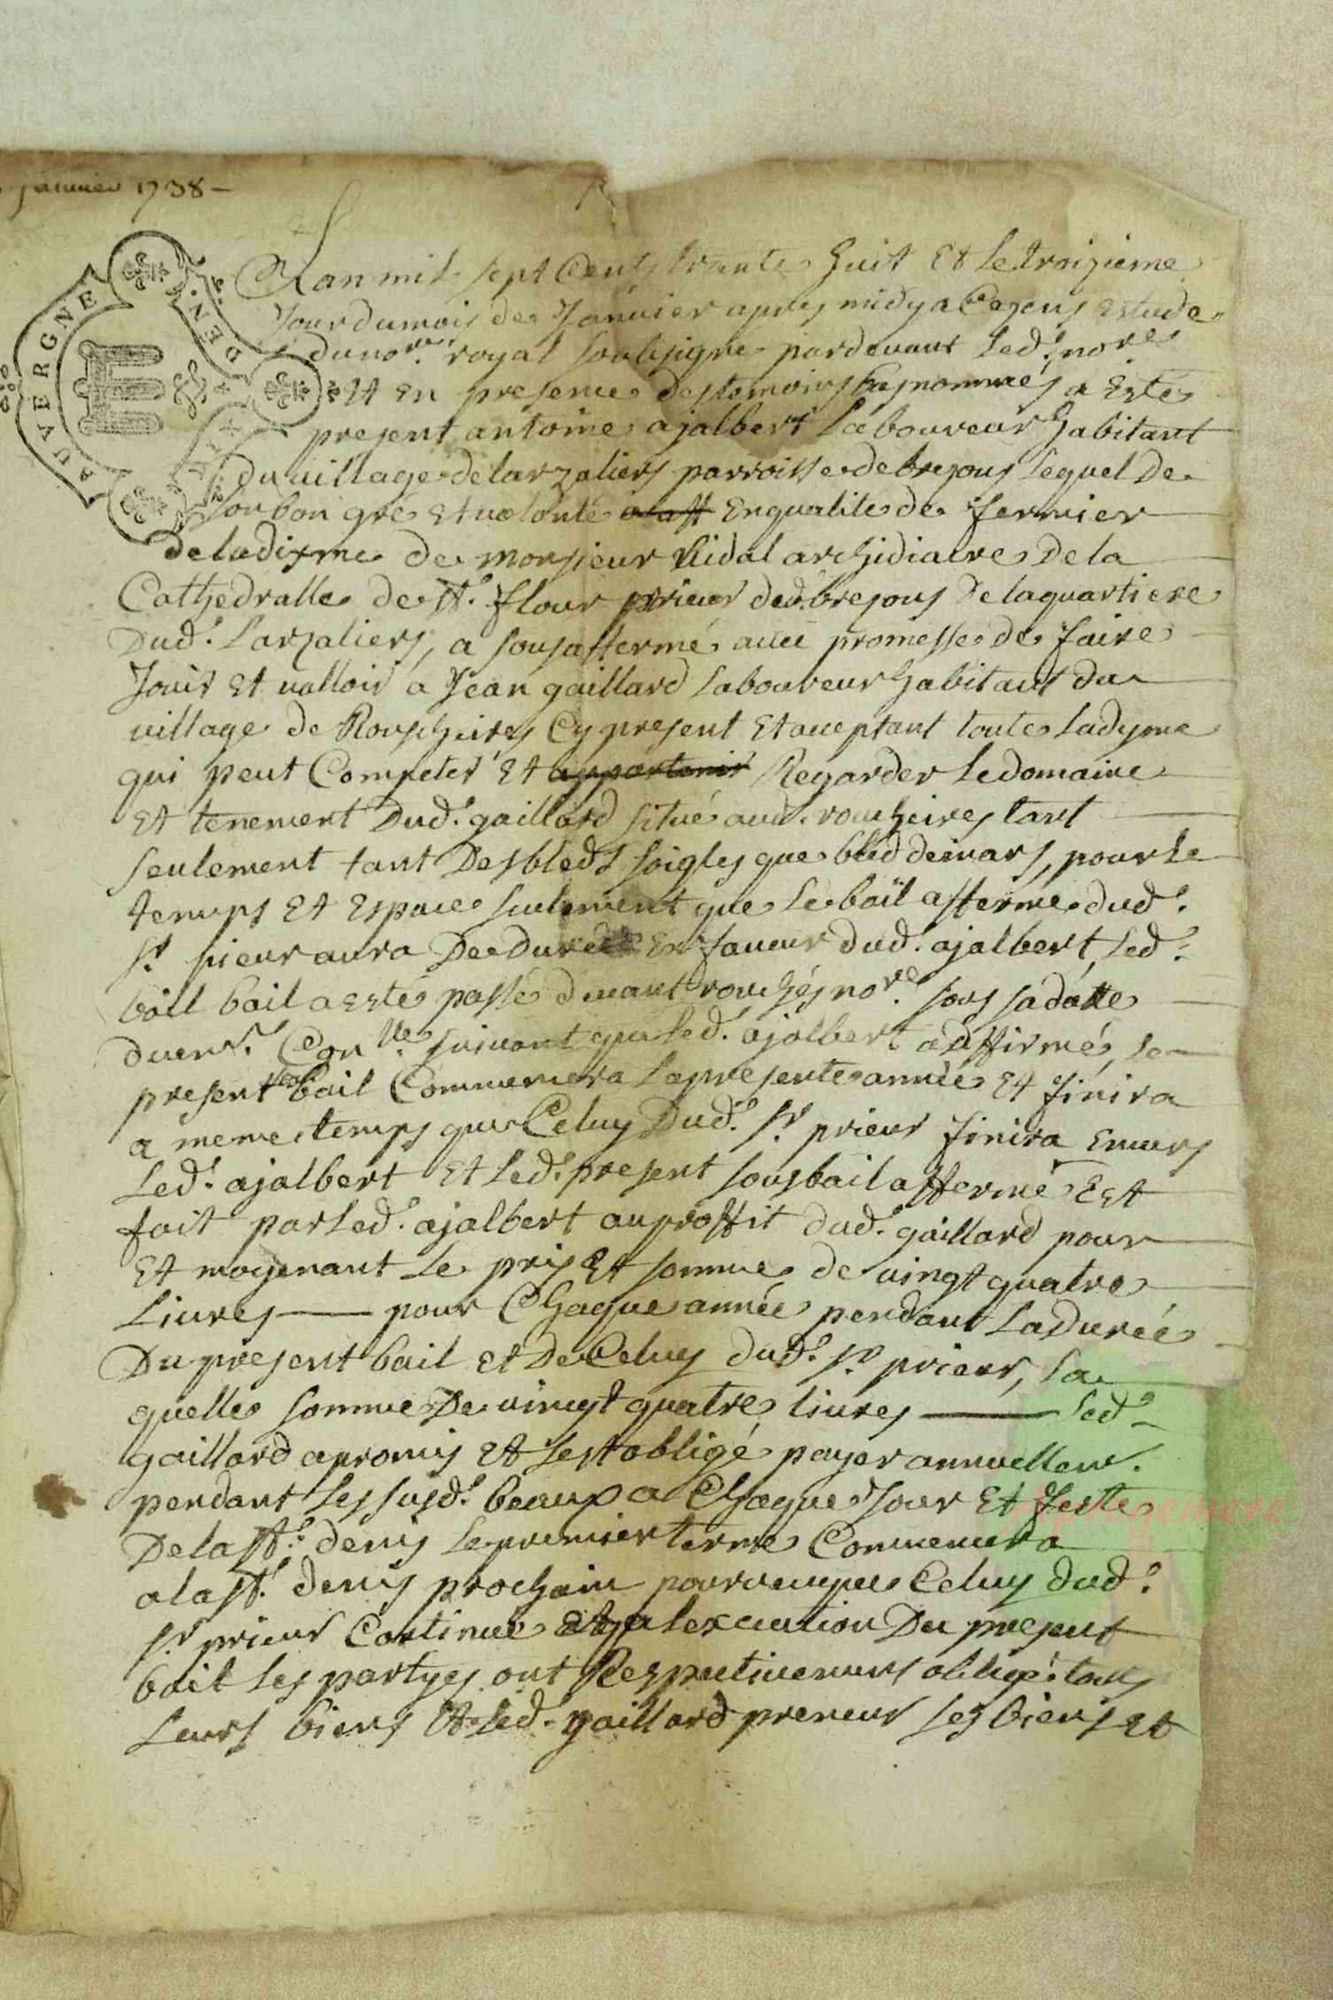 janvier 1738
AUVERGNE
DEN.
Lan mil sept Cents trante huit Et le troizieme
Jour dumois de Janvier apres midy a Cezens estude
du nore. royal soubsigne pardevant led. nore
Et En presence des temoins bas nommés a Este
present antoine ajalbert Laboureur habitant
du village de larzaliers parroisse de brezons lequel De
son bon gré et volonté En qualite de fermier
de la dixme de monsieur Vidal archidiacre De la
Cathedralle de st. flour prieur dud. brezons De la quartiere
Dud. Larzaliers, a sousaffermé avec promesse de faire
Jouir et valloir a Jean gaillard Laboureur habitant du
village de Roucheires Cy present Et acceptant toute Ladyme
qui peut Competer Et appartenir Regarder Le domaine
Et tenement Dud. gaillard situé aud. roucheires tant
seulement tant Des bleds soigles que bled de mars, pour Le
temps Et Espace seulement que Le bail afferme dud.
sr. prieur aura De Durée En faveur dud. ajalbert Led.
bail bail a esté passé devant rouchés nore. sous sa datte
suivant que led. ajalbert a affirmé, Le
present bail Commencera La presente année Et finira
a meme temps que Celuy Dud. sr prieur finira Envers
Led. ajalbert Et Led. present sousbail afferme Est
fait par Led. ajalbert au proffit dud. gaillard pour
Et moyenant Le pris Et somme de vingt quatre
Livres — pour Chaque année pendant La Durée
Du present bail et De Celuy dud. sr prieur, La
quelle somme De vingt quatre livres — Led.
gaillard a promis Et sest obligé payer annuellem.
pendant les susd. beaux a Chaque Jour Et feste
De la st. denis Le premier terme Commencera
a la st. denis prochain pourveu que Celuy dud.
sr prieur Continue Et a lexecution Du present
bail Les partyes ont Respectivement obligé tous
Leurs biens Et Led. gaillard preneur ses biens Et
Aprogemere